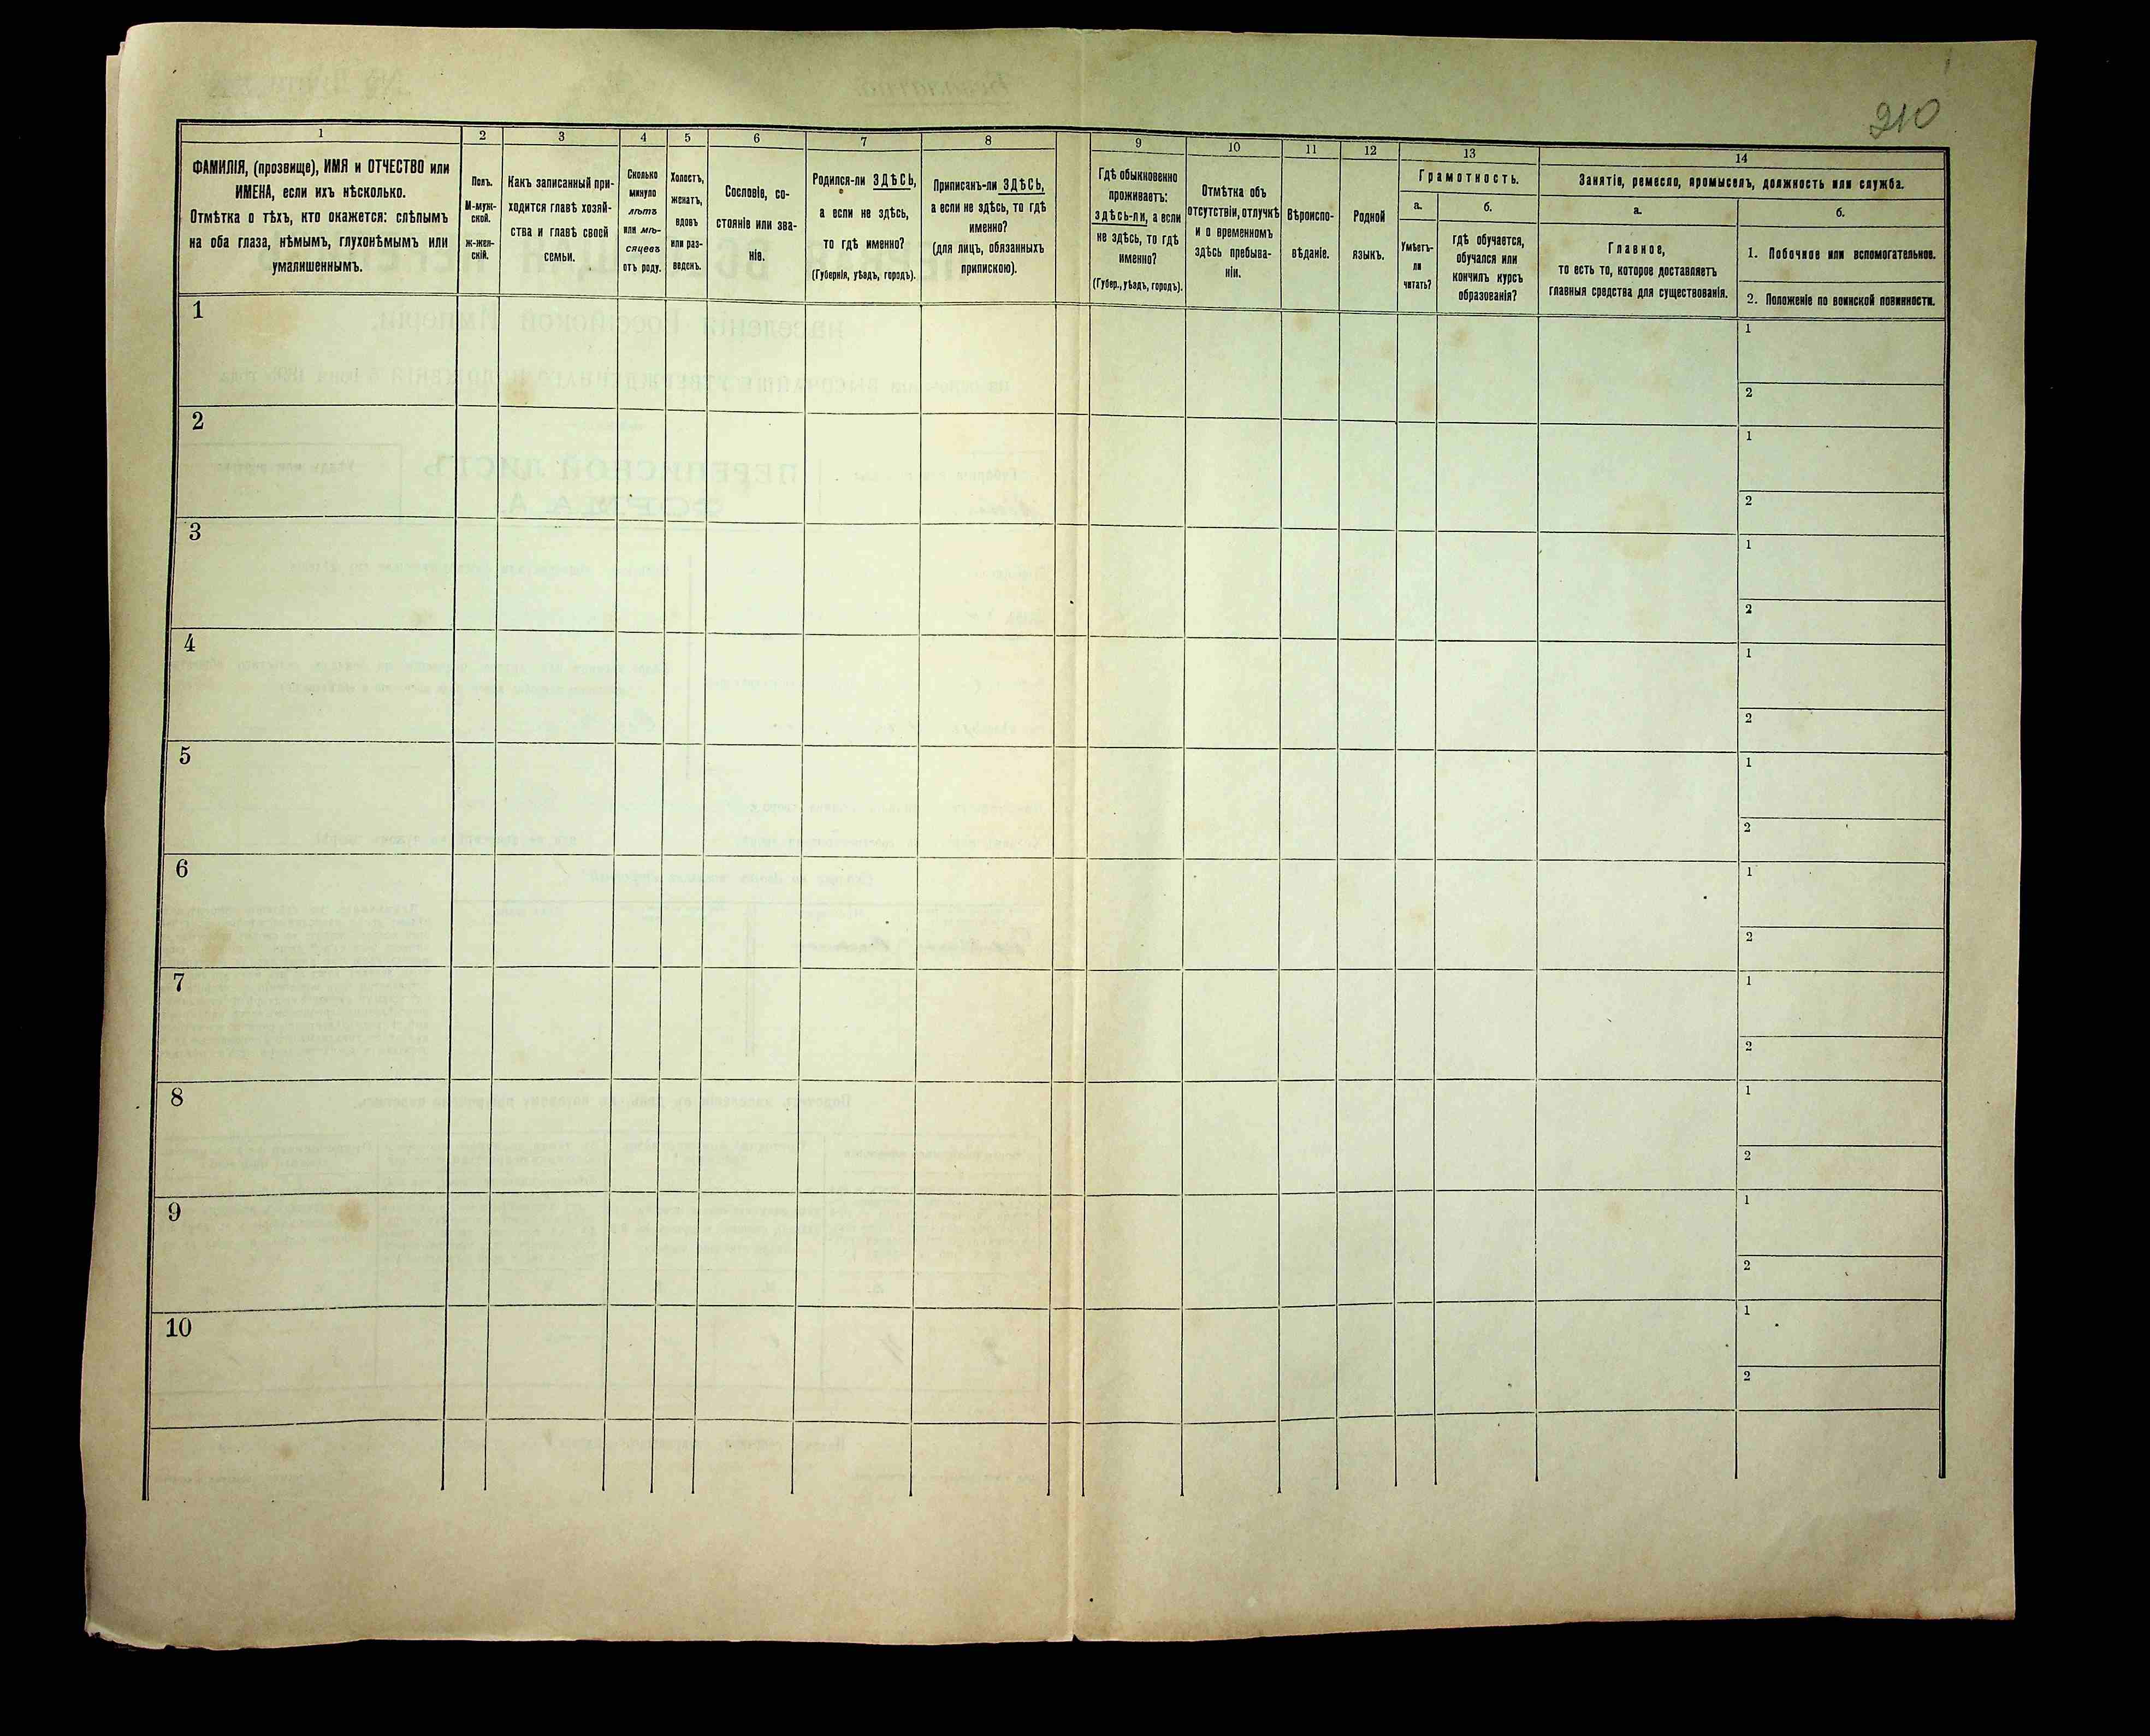 210
1
ФАМИЛІЯ, (прозвище), ИМЯ и ОТЧЕСТВО или
ИМЕНА, если ихъ нѣсколько.
Отмѣтка о тѣхъ, кто окажется: слѣпымъ
на оба глаза, нѣмымъ, глухонѣмымъ или
умалишеннымъ.
2
Полъ.
М-муж-
ской.
Ж-жен-
скій.
3
Какъ записанный при-
ходится главѣ хозяй-
ства и главѣ своей
семьи.
4
Сколько
минуло
лѣтъ
или мѣ-
сяцевъ
отъ роду.
5
Холостъ,
женатъ,
вдовъ
или раз-
веденъ.
6
Сословіе, со-
стояніе или зва-
ніе.
7
Родился-ли ЗДѢСЬ,
а если не здѣсь,
то гдѣ именно?
(Губернія, уѣздъ, городъ).
8
Приписанъ-ли ЗДѢСЬ,
а если не здѣсь, то гдѣ
именно?
(для лицъ, обязанныхъ
припискою).
9
Гдѣ обыкновенно
проживаетъ:
здѣсь-ли, а если
не здѣсь, то гдѣ
именно?
(Губер., уѣздъ, городъ).
10
Отмѣтка объ
отсутствіи, отлучкѣ
и о временномъ
здѣсь пребыва-
ніи.
11
Вѣроиспо-
вѣданіе.
12
Родной
языкъ.
13
Грамотность.
а.
Умѣетъ-
ли
читать?
б.
гдѣ обучается,
обучался или
кончилъ курсъ
образованія?
14
Занятіе, ремесло, промыселъ, должность или служба.
а.
Главное,
то есть то, которое доставляетъ
главныя средства для существованія.
б.
1. Побочное или вспомогательное.
2. Положеніе по воинской повинности.
1
1
2
2
1
2
3
1
2
4
1
2
5
1
2
6
1
2
7
1
2
8
1
2
9
1
2
10
1
2